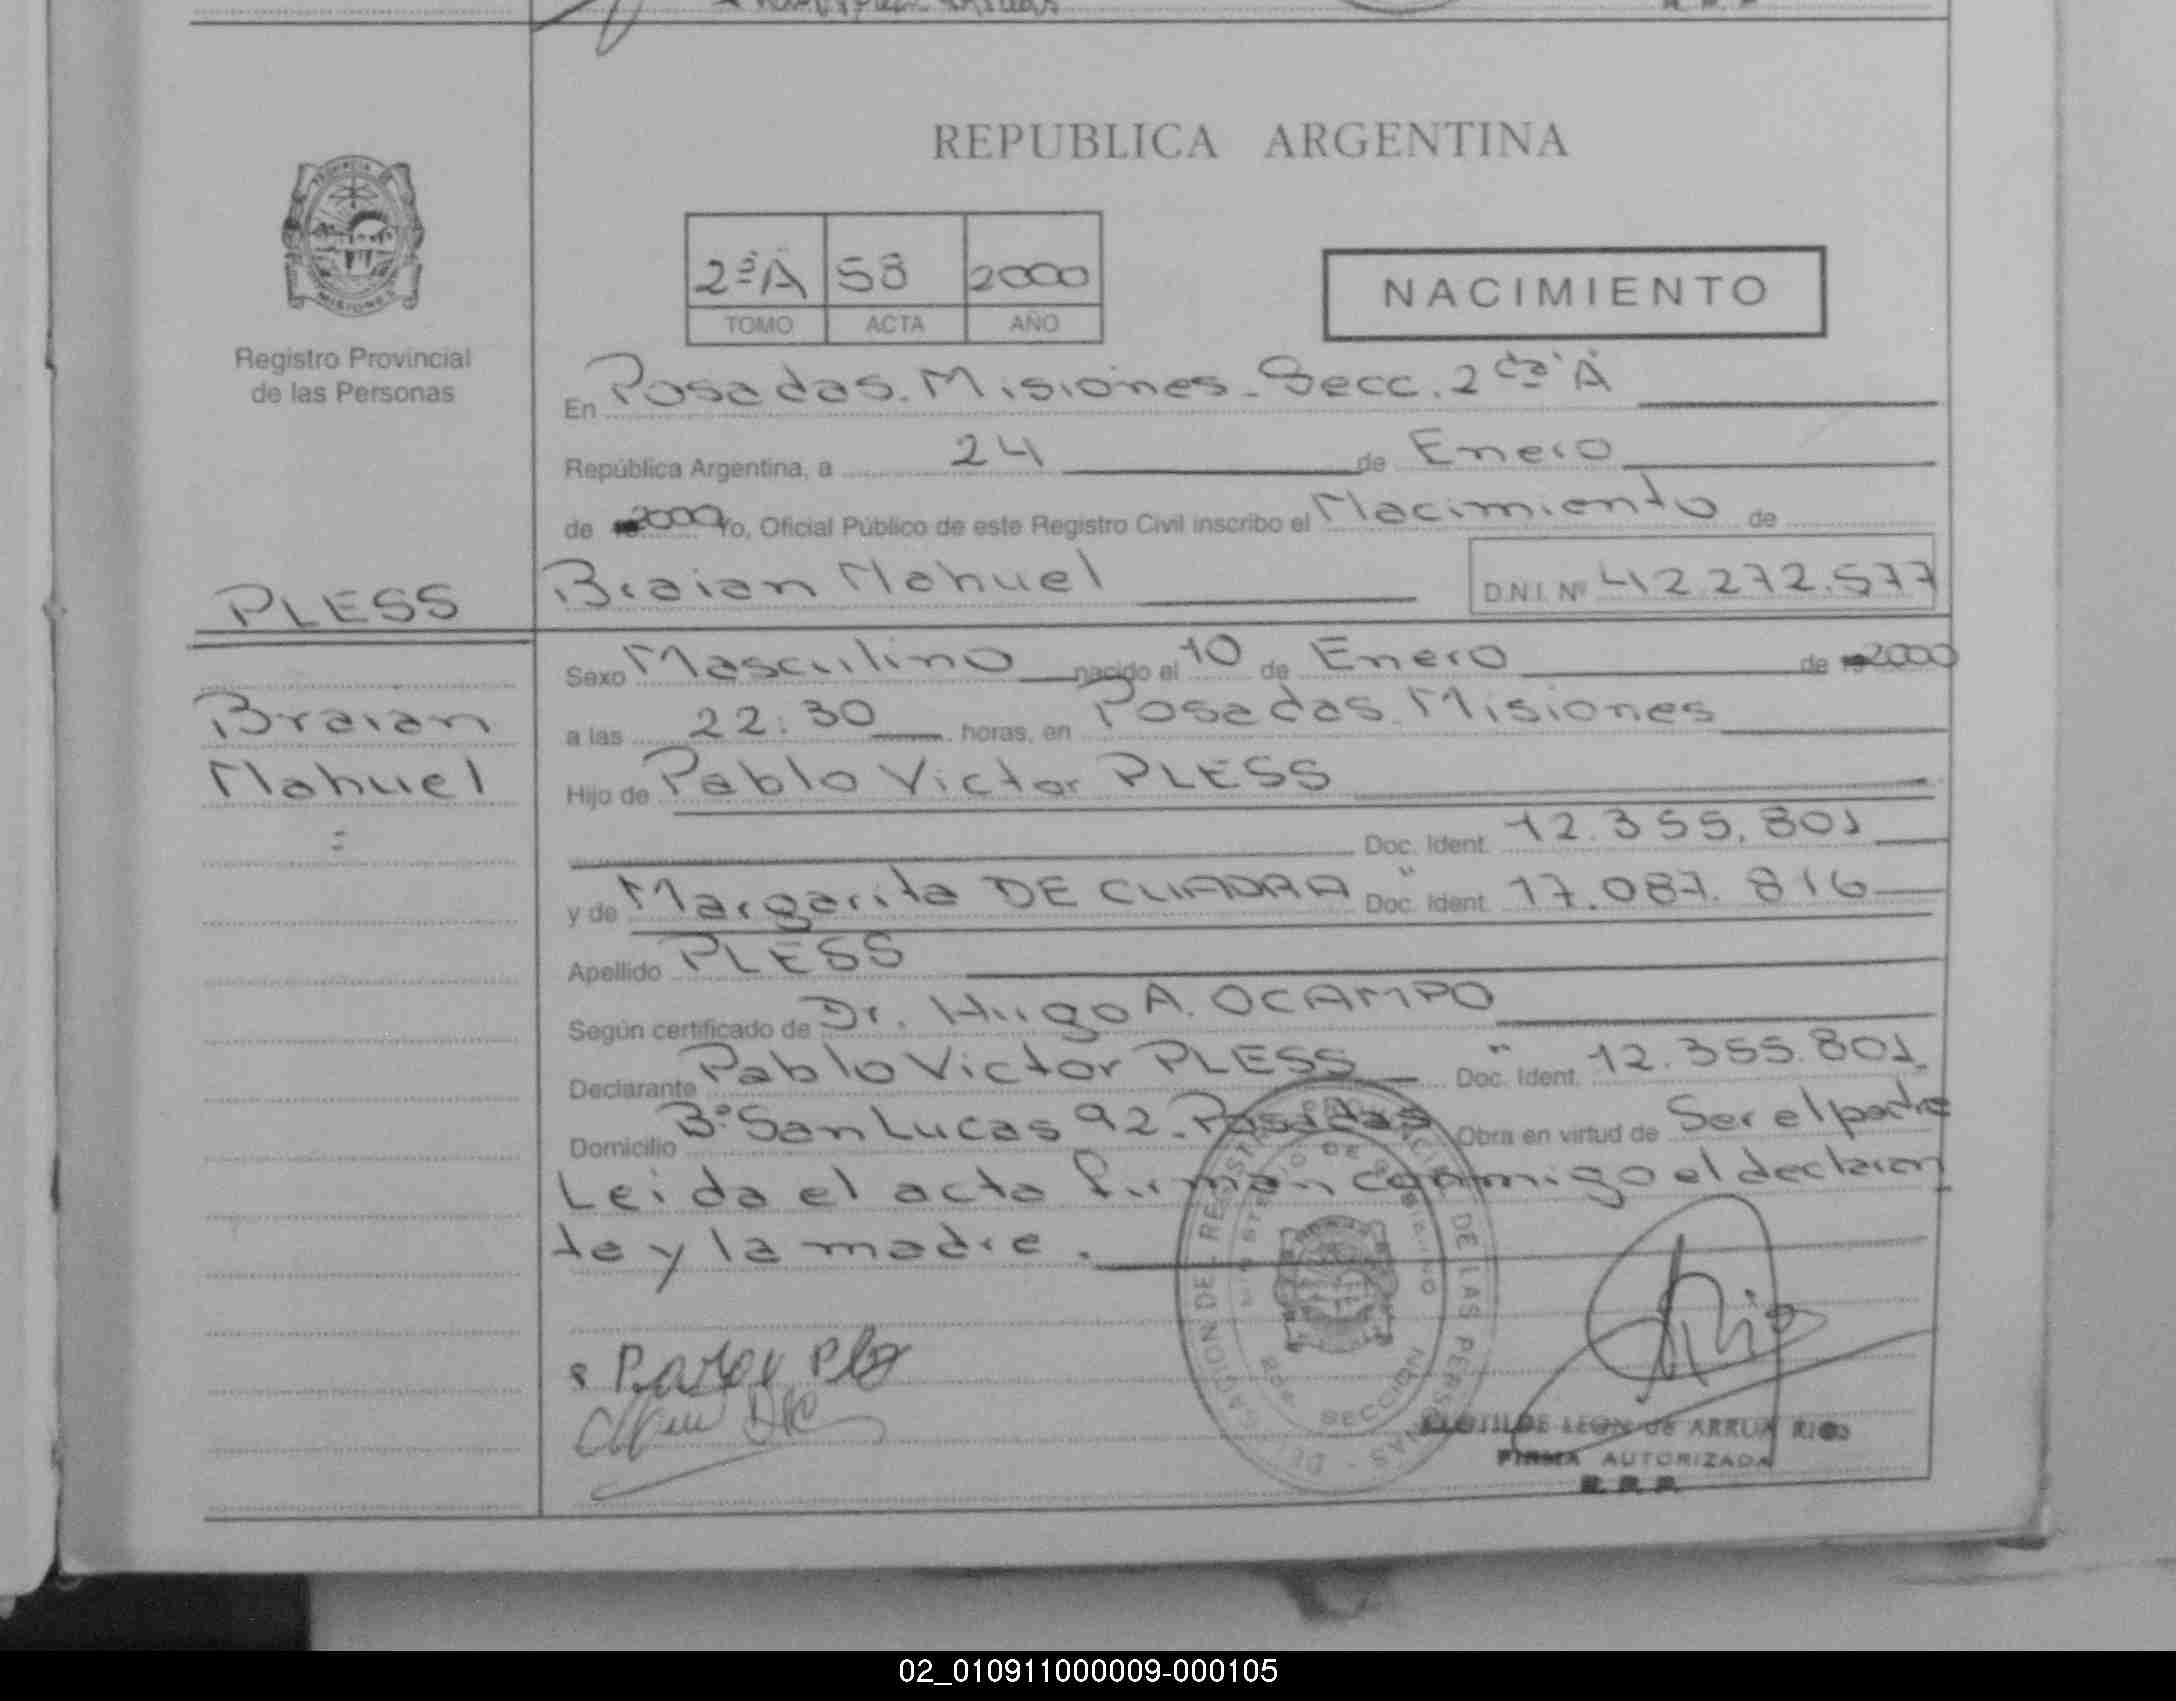 REPUBLICA ARGENTINA
2ª A 58 2000
TOMO ACTA AÑO
NACIMIENTO
Registro Provincial
de las Personas
En Posadas. Misiones - Secc. 2da "A"
República Argentina, a 24 de Enero
de 2000 Yo, Oficial Público de este Registro Civil inscribo el Nacimiento de
PLESS
Braian Nahuel D.N.I. Nº 42.272.577
Sexo Masculino nacido el 10 de Enero de 2000
Braian
Nahuel
a las 22:30 horas, en Posadas. Misiones
Hijo de Pablo Victor PLESS
Doc. Ident. 12.355.801
y de Margarita DE CUADRA Doc. Ident. 17.087.816
Apellido PLESS
Según certificado de Dr. Hugo A. OCAMPO
Declarante Pablo Victor PLESS Doc. Ident. 12.355.801
Domicilio Bº San Lucas 92. Posadas Obra en virtud de Ser el padre
Leida el acta firman conmigo el declaran
te y la madre.
DELEGACION DEL REGISTRO PROVINCIAL DE LAS PERSONAS
MINISTERIO DE GOBIERNO
SECCION
CLOTILDE LEON de ARRUA RIOS
FIRMA AUTORIZADA
R. P. P.
02_010911000009-000105